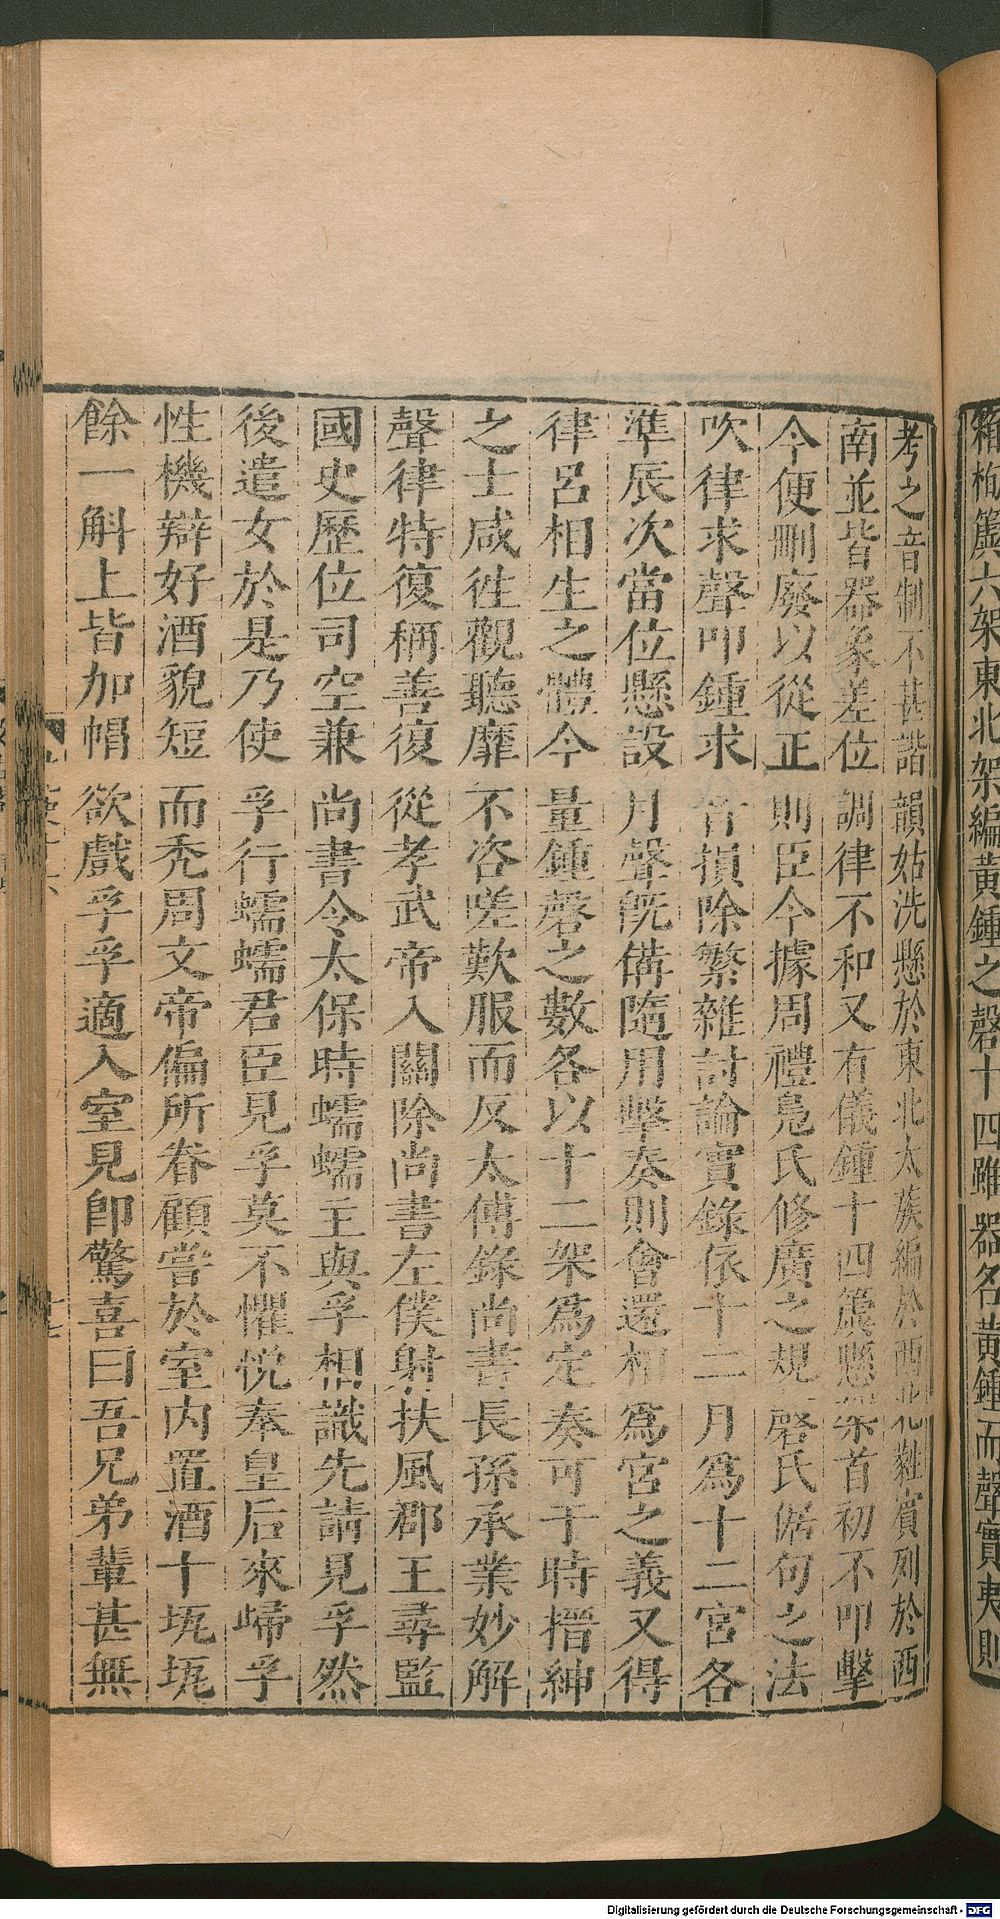 箱栒簴六架東北架編黃鍾之磬十四雖器名黃鍾而聲實夷則
考之音制不甚諧韻姑洗懸於東北太蔟編於西北蕤賓列於西
南並皆器象差位調律不和又有儀鍾十四簴懸架首初不叩擊
今便刪廢以從正則臣今據周禮鳧氏修廣之規磬氏倨句之法
吹律求聲叩鍾求音損除繁雜討論實錄依十二月爲十二宮各
準辰次當位懸設月聲旣備隨用擊奏則會還相爲宮之義又得
律呂相生之體今量鍾磬之數各以十二架爲定奏可于時搢紳
之士咸徃觀聽靡不咨嗟歎服而反太傅錄尚書長孫承業妙解
聲律特復稱善復從孝武帝入關除尚書左僕射扶風郡王尋監
國史歷位司空兼尚書令太保時蠕蠕主與孚相識先請見孚然
後遣女於是乃使孚行蠕蠕君臣見孚莫不懼悅奉皇后來歸孚
性機辯好酒貌短而禿周文帝偏所眷顧嘗於室內置酒十瓨瓨
餘一斛上皆加帽欲戲孚孚適入室見卽驚喜曰吾兄弟輩甚無
Digitalisierung gefördert durch die Deutsche Forschungsgemeinschaft - DFG